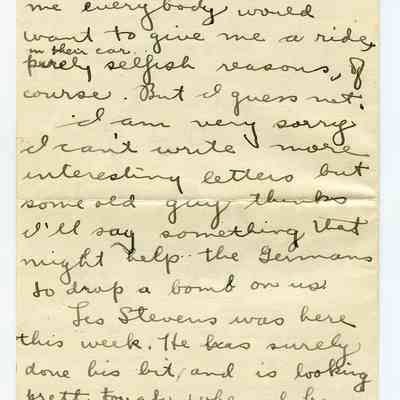 me everybody would
want to give me a ride,
in their car.
purely selfish reasons, of
course. But I guess not.
I am very sorry
I can't write more
interesting letters but
some old guy thinks
I'll say something that
might help the Germans
to drop a bomb on us.
Les Stevens was here
this week. He has surely
done his bit, and is looking